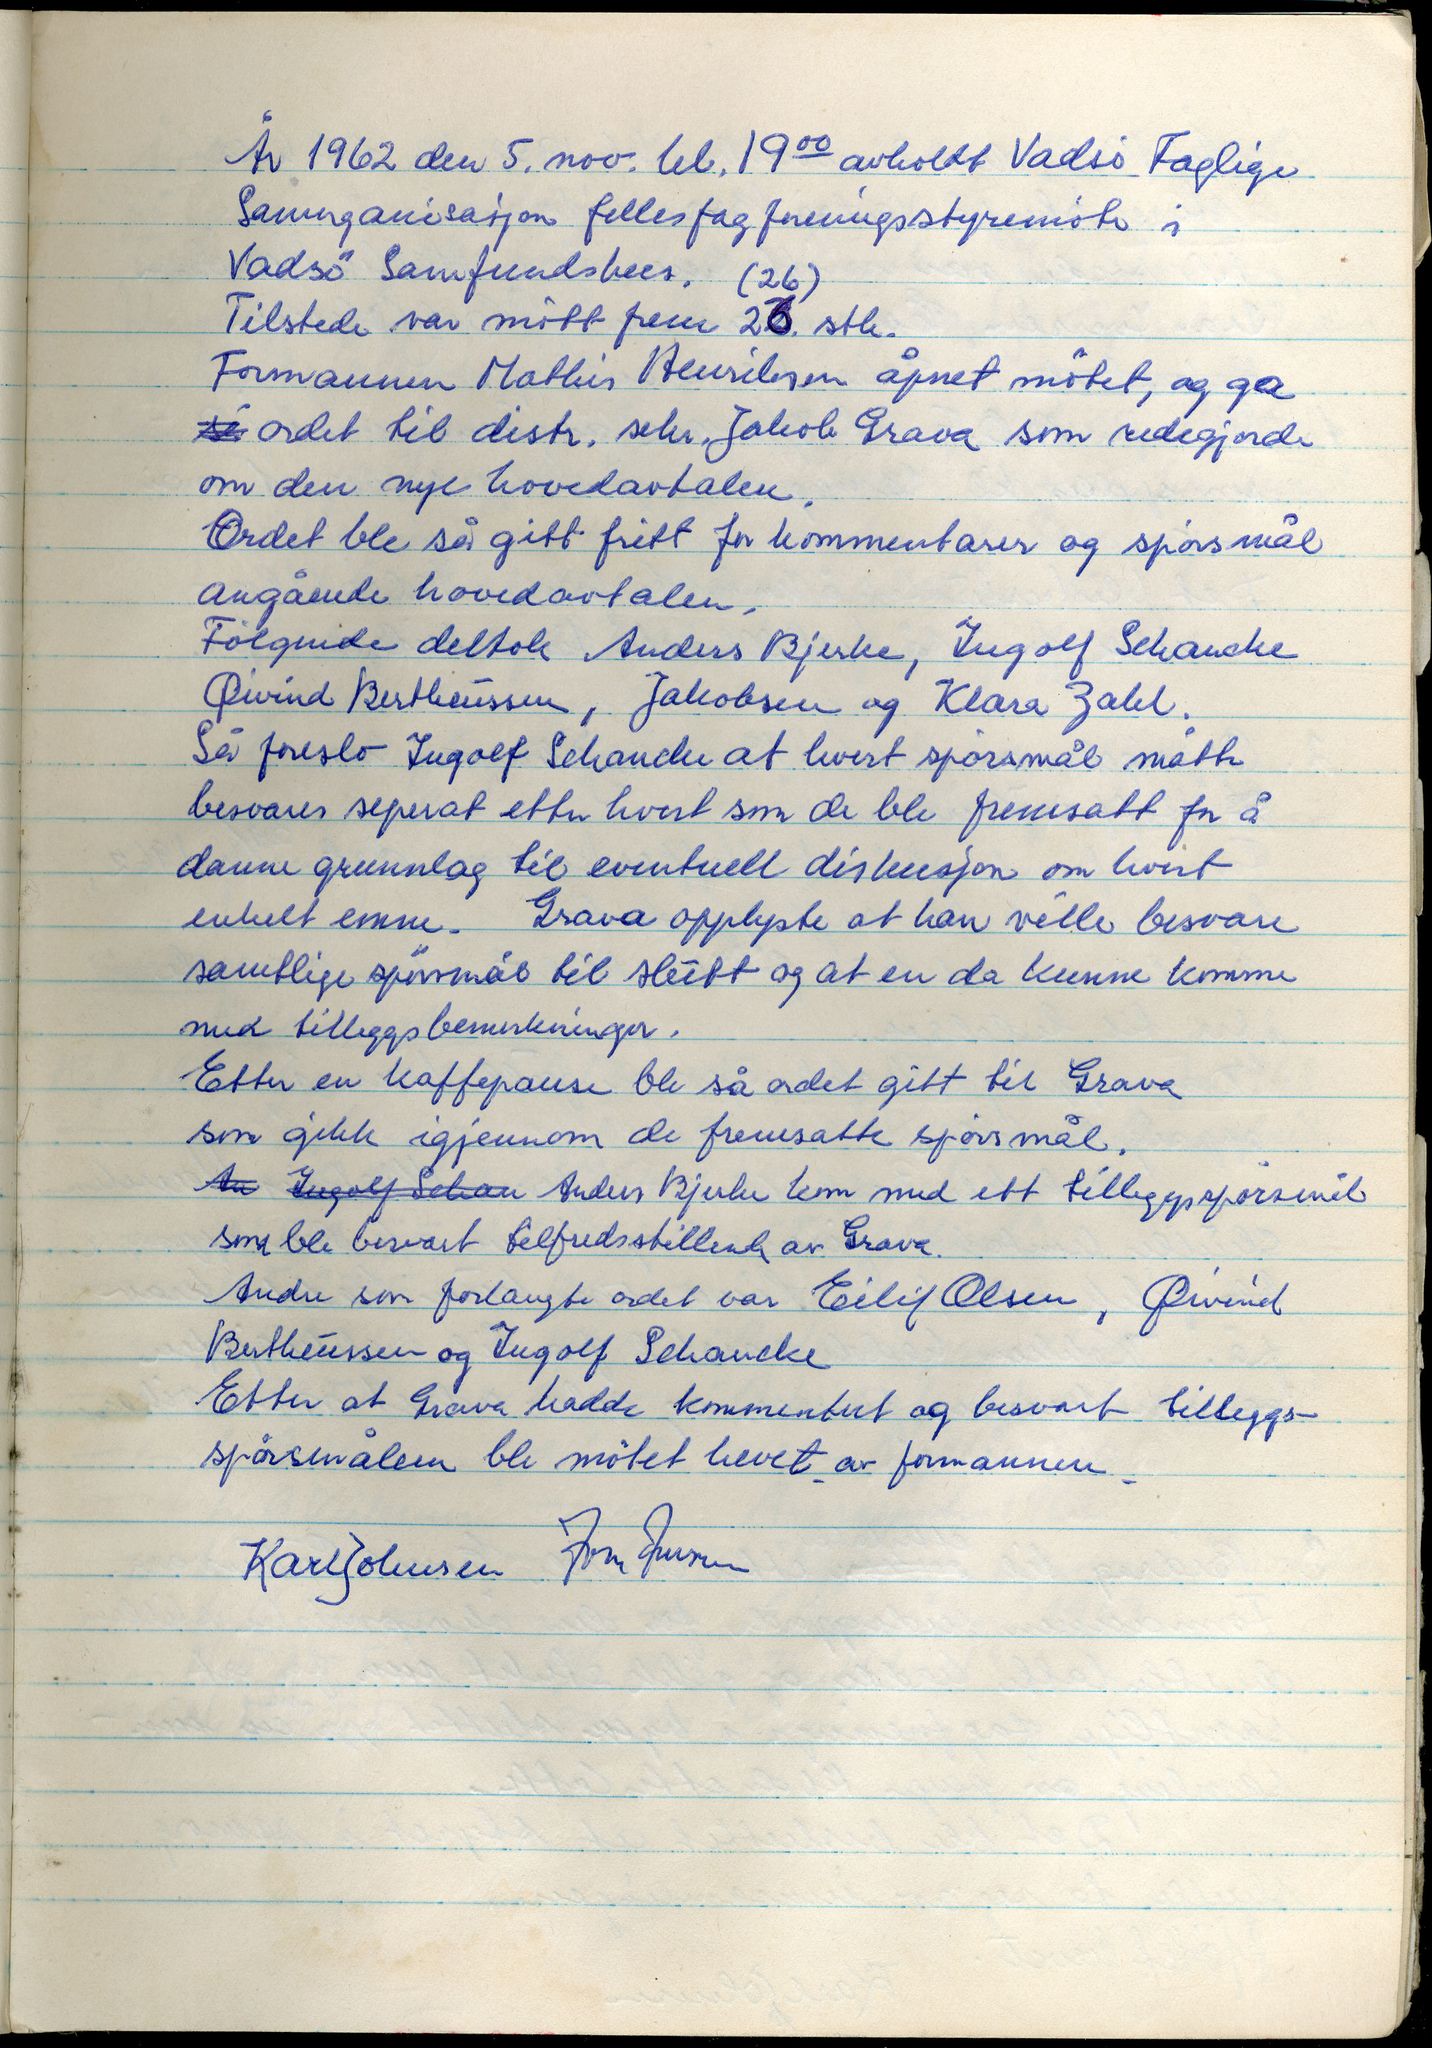 År 1962 den 5. nov. kl. 19⁰⁰ avholdt Vadsö Faglige
Samorganisasjon fellesfagforeningsstyremöte i
Vadsö Samfundshus. (26)
Tilstede var mött frem 26. stk.
Formannen Mathis Henriksen åpnet mötet, og ga
så ordet til distr. sekr. Jakob Grava som redegjorde
om den nye hovedavtalen.
Ordet ble så gitt fritt for kommentarer og spörsmål
angående hovedavtalen.
Fölgende deltok Anders Bjerke, Ingolf Schancke
Øivind Bertheussen, Jakobsen og Klara Zahl.
Så foreslo Ingolf Schancke at hvert spörsmål måtte
besvares seperat etter hvert som de ble fremsatt for å
danne grunnlag til eventuell diskusjon om hvert
enkelt emne. Grava opplyste at han ville besvare
samtlige spörsmål til slutt og at en da kunne komme
med tilleggsbemerkninger.
Etter en kaffepause ble så ordet gitt til Grava
som gikk igjennom de fremsatte spörsmål.
An Ingolf Schan Anders Bjerke kom med ett tilleggsspörsmål
som ble besvart tilfredsstillende av Grava.
Andre som forlangte ordet var Eilif Olsen, Øivind
Bertheussen og Ingolf Schancke
Etter at Grava hadde kommentert og besvart tilleggs-
spörsmålene ble mötet hevet av formannen.
Karl Johnsen